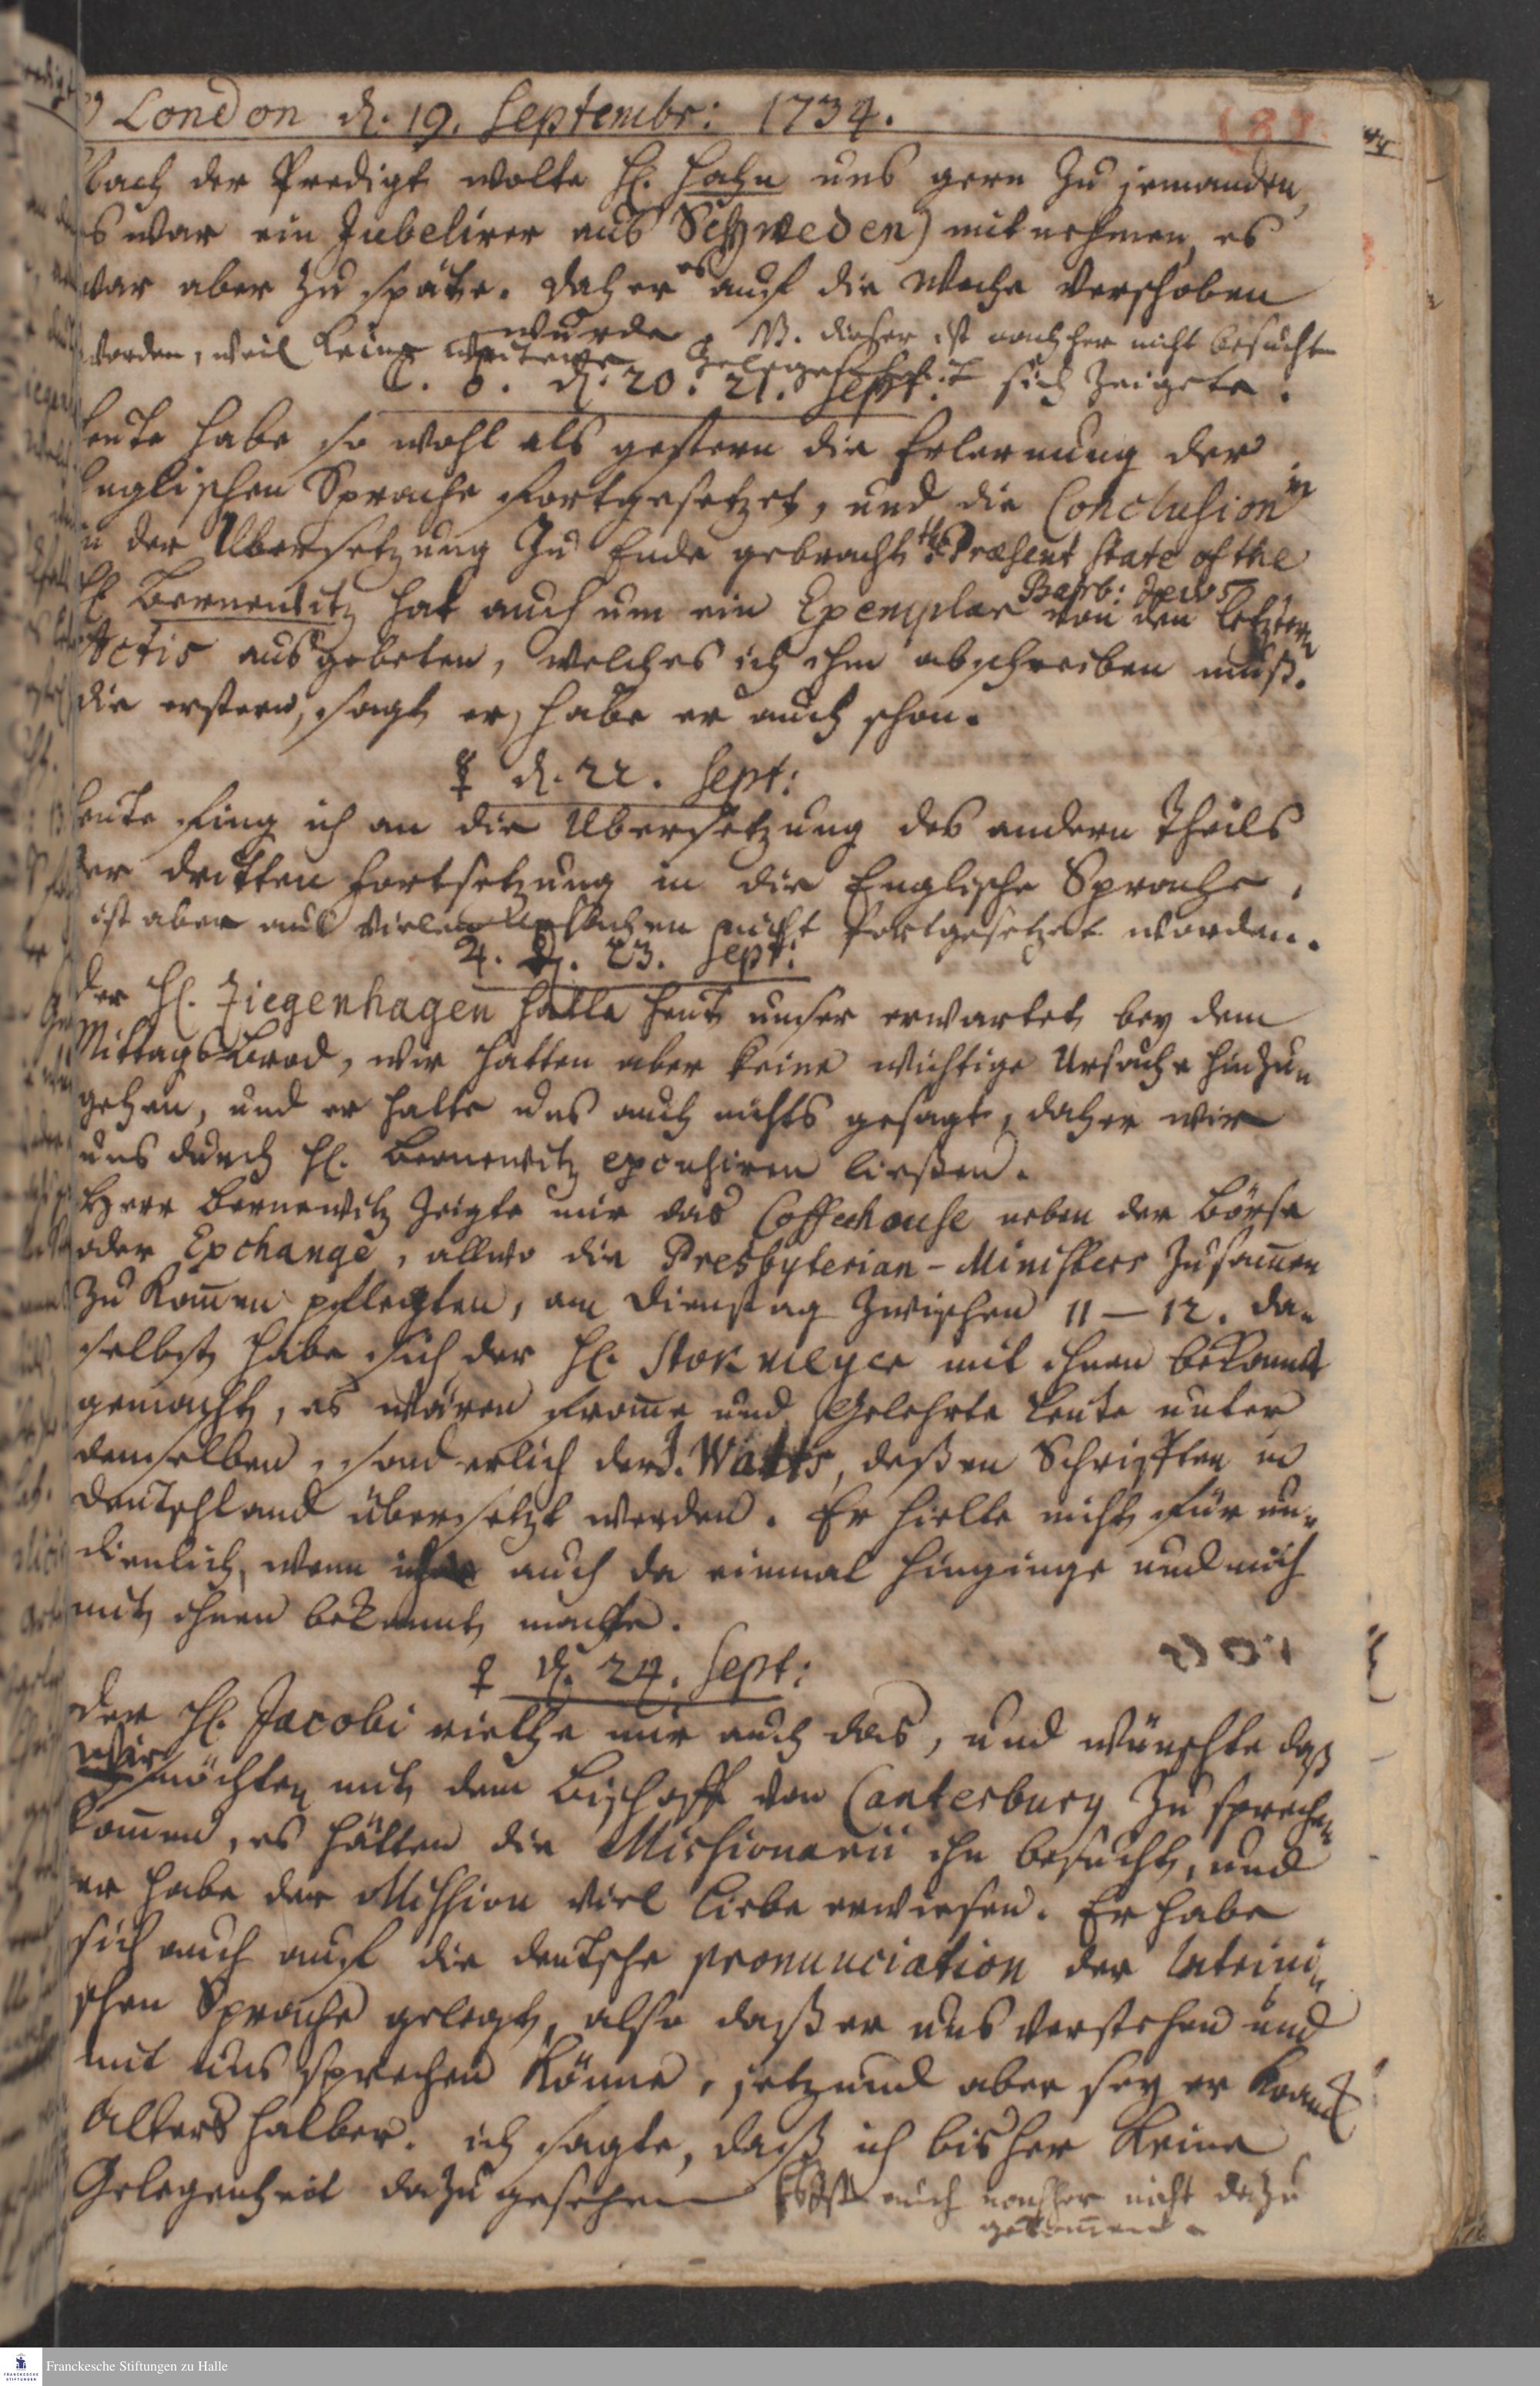 London d. 19. Septembr: 1734.
Nach der Predigt wolte H. Hahn uns gern zu jemanden
es war ein Jubelirer aus Schweden) mit nehmen, es
war aber zu späte. Daher es auf die Woche verschoben
wurde. NB. dieser ist nachher nicht besucht
worden, weil keine weitere Gelegenheit sich zeigete.
d. 20. 21. Sept:
Heute habe so wohl als gestern die Erlernung der
Englischen Sprache fortgesetzet, und die Conclusion in
der Ubersetzung zu Ende gebracht the Præsent State of the
Barb: Jews
H. Bernewitz hat auch um ein Exemplar von den letztern
Actis ausgebeten, welches ich ihm abschreiben muß.
die erstern, sagt er, habe er auch schon.
☿ d. 22. Sept:
Heute fing ich an die Ubersetzung des andern Theils
der dritten Fortsetzung in die Englische Sprache,
ist aber aus vielen Ursachen nicht fortgesetzet worden.
♃. d. 23. Sept:
Der H. Ziegenhagen hatte heut unser erwartet bey dem
Mittags-Brod, wir hatten aber keine wichtige Ursache hinzu-
gehen, und er hatte uns auch nichts gesagt, daher wir
uns durch H. Bernewitz excusiren ließen.
Herr Bernewitz zeigte mir das Coffeehouse neben der Börse
oder Exchange, allwo die Presbyterian-Ministers zusam̅en
zu kom̅en pflegten, am Dienstag zwischen 11-12. Da-
selbst habe sich der H. Stokmeyer mit ihnen bekannt
gemacht, es wären from̅e und Gelehrte Leute unter
demselben, sonderlich der J. Watts, deßen Schrifften in
Deutschland übersetzt werden. Er hielte nicht für un-
dienlich, wenn auch da einmal hinginge und mich
mit ihnen bekannt machte.
♀ d. 24. Sept:
Der H. Jacobi riethe mir auch das, und wünschte daß
wir möchten mit dem Bischoff von Canterbury zu sprechen
kom̅en, es hätten die Missionarii ihn besucht, und
er habe der Mission viel Liebe erwiesen. Er habe
sich auch auf die deutsche pronunciation der lateini-
schen Sprache gelegt, also daß er uns verstehen und
mit uns sprechen könne, jetzund aber sey er kranck
Alters halber. ich sagte, daß ich bisher keine
Gelegenheit dazu gesehen auch nachher nicht dazu
gekom̅en.
Franckesche Stiftungen zu Halle